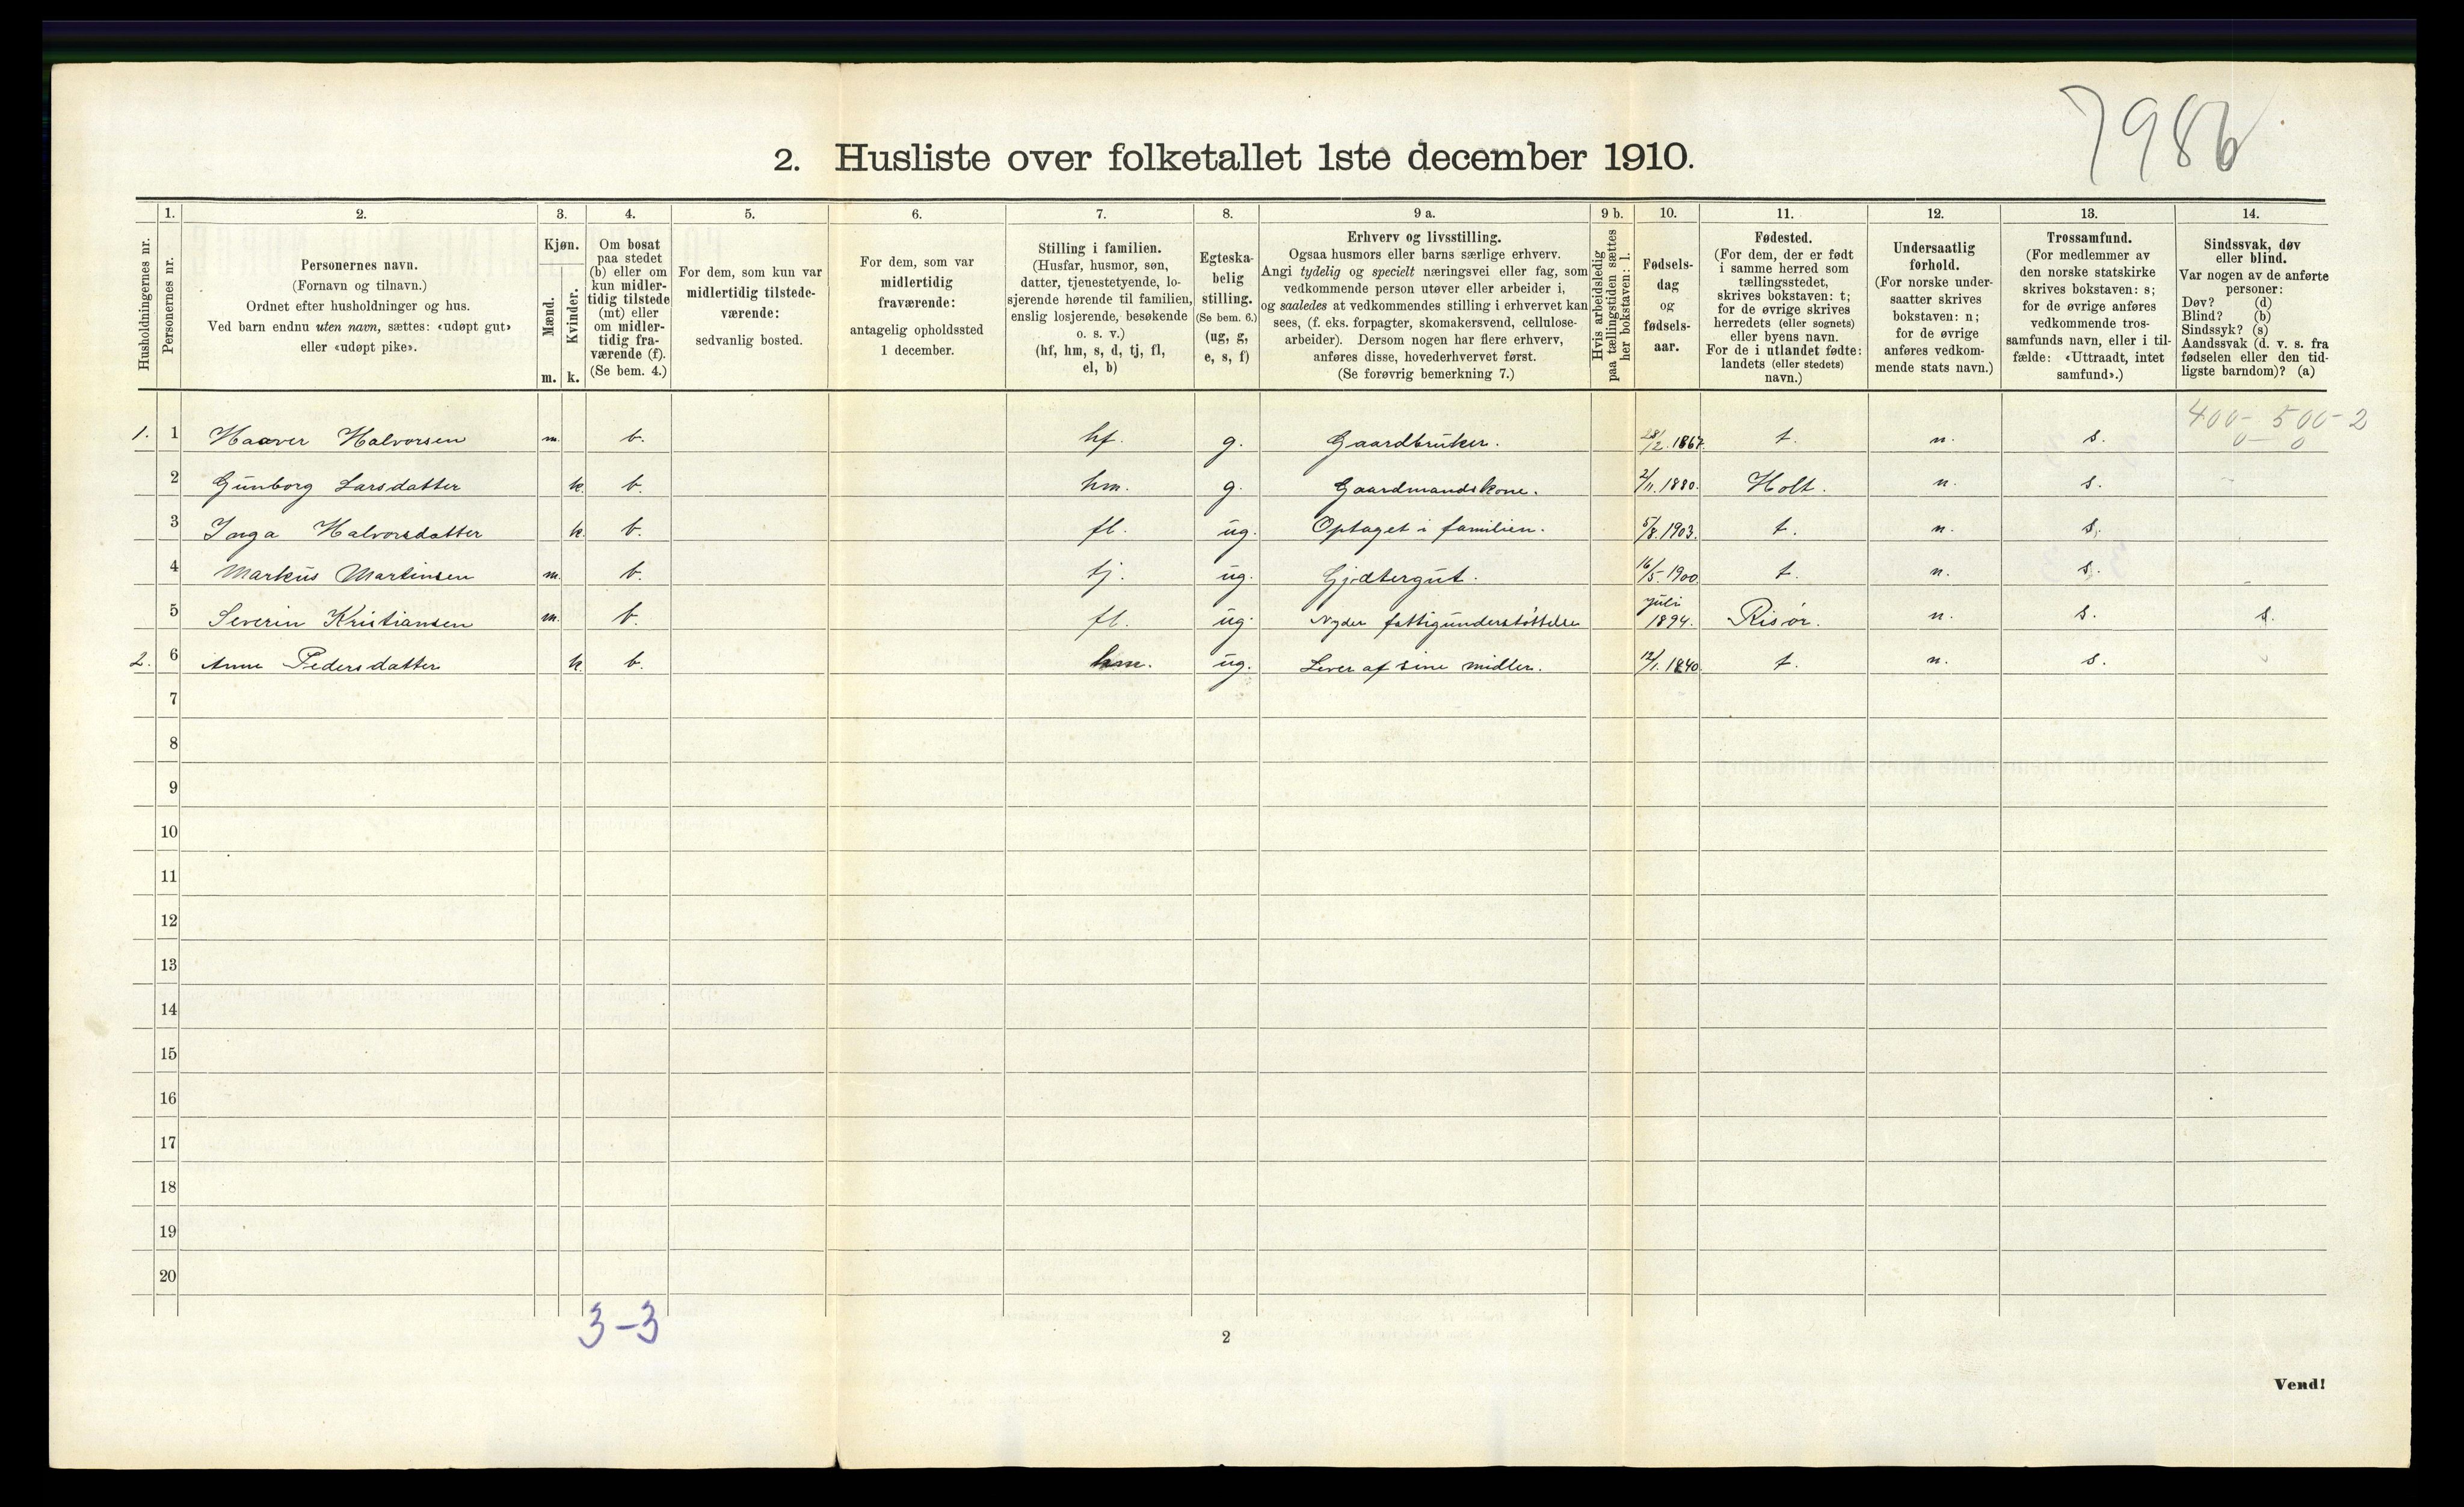 7986
2. Husliste over folketallet 1ste december 1910.
1. 2. 3. 4. 5. 6. 7. 8. 9 a. 9 b. 10. 11. 12. 13. 14.
Husholdningernes nr.
Personernes nr.
Personernes navn.
(Fornavn og tilnavn.)
Ordnet efter husholdninger og hus.
Ved barn endnu uten navn, sættes: «udøpt gut»
eller «udøpt pike».
Kjøn.
Mænd. Kvinder.
m. k.
Om bosat
paa stedet
(b) eller om
kun midler-
tidig tilstede
(mt) eller
om midler-
tidig fra-
værende (f).
(Se bem. 4.)
For dem, som kun var
midlertidig tilstede-
værende:
sedvanlig bosted.
For dem, som var
midlertidig
fraværende:
antagelig opholdssted
1 december.
Stilling i familien.
(Husfar, husmor, søn,
datter, tjenestetyende, lo-
sjerende hørende til familien,
enslig losjerende, besøkende
o. s. v.)
(hf, hm, s, d, tj, fl,
el, b)
Egteska-
belig
stilling.
(Se bem. 6.)
(ug, g,
e, s, f)
Erhverv og livsstilling.
Ogsaa husmors eller barns særlige erhverv.
Angi tydelig og specielt næringsvei eller fag, som
vedkommende person utøver eller arbeider i,
og saaledes at vedkommendes stilling i erhvervet kan
sees, (f. eks. forpagter, skomakersvend, cellulose-
arbeider). Dersom nogen har flere erhverv,
anføres disse, hovederhvervet først.
(Se forøvrig bemerkning 7.)
Hvis arbeidsledig
paa tællingstiden sættes
her bokstaven: l.
Fødsels-
dag
og
fødsels-
aar.
Fødested.
(For dem, der er født
i samme herred som
tællingsstedet,
skrives bokstaven: t;
for de øvrige skrives
herredets (eller sognets)
eller byens navn.
For de i utlandet fødte:
landets (eller stedets)
navn.)
Undersaatlig
forhold.
(For norske under-
saatter skrives
bokstaven: n;
for de øvrige
anføres vedkom-
mende stats navn.)
Trossamfund.
(For medlemmer av
den norske statskirke
skrives bokstaven: s;
for de øvrige anføres
vedkommende tros-
samfunds navn, eller i til-
fælde: «Uttraadt, intet
samfund».)
Sindssvak, døv
eller blind.
Var nogen av de anførte
personer:
Døv? (d)
Blind? (b)
Sindssyk? (s)
Aandssvak (d. v. s. fra
fødselen eller den tid-
ligste barndom)? (a)
400- 500-2
0 — 0
1. 1 Haaver Halvorsen m. b. hf. g. Gaardbruker. 28/2. 1867. t. n. s.
2 Gunborg Larsdatter k. b. hm. g. Gaardmandskone. 2/11. 1880. Holt. n. s.
3 Inga Halvorsdatter k. b. fl. ug. Optaget i familien. 5/8. 1903. t. n. s.
4 Markus Martinsen m. b. tj. ug. Gjætergut. 16/5. 1900. t. n. s.
5 Severin Kristiansen m. b. fl. ug. Nyder fattigunderstøttelse juli 1894. Risør. n. s. s.
2. 6 Anne Pedersdatter k. b. hm. ug. Lever af sine midler. 12/1. 1840. t. n. s.
7
8
9
10
11
12
13
14
15
16
17
18
19
20
3-3
2
Vend!